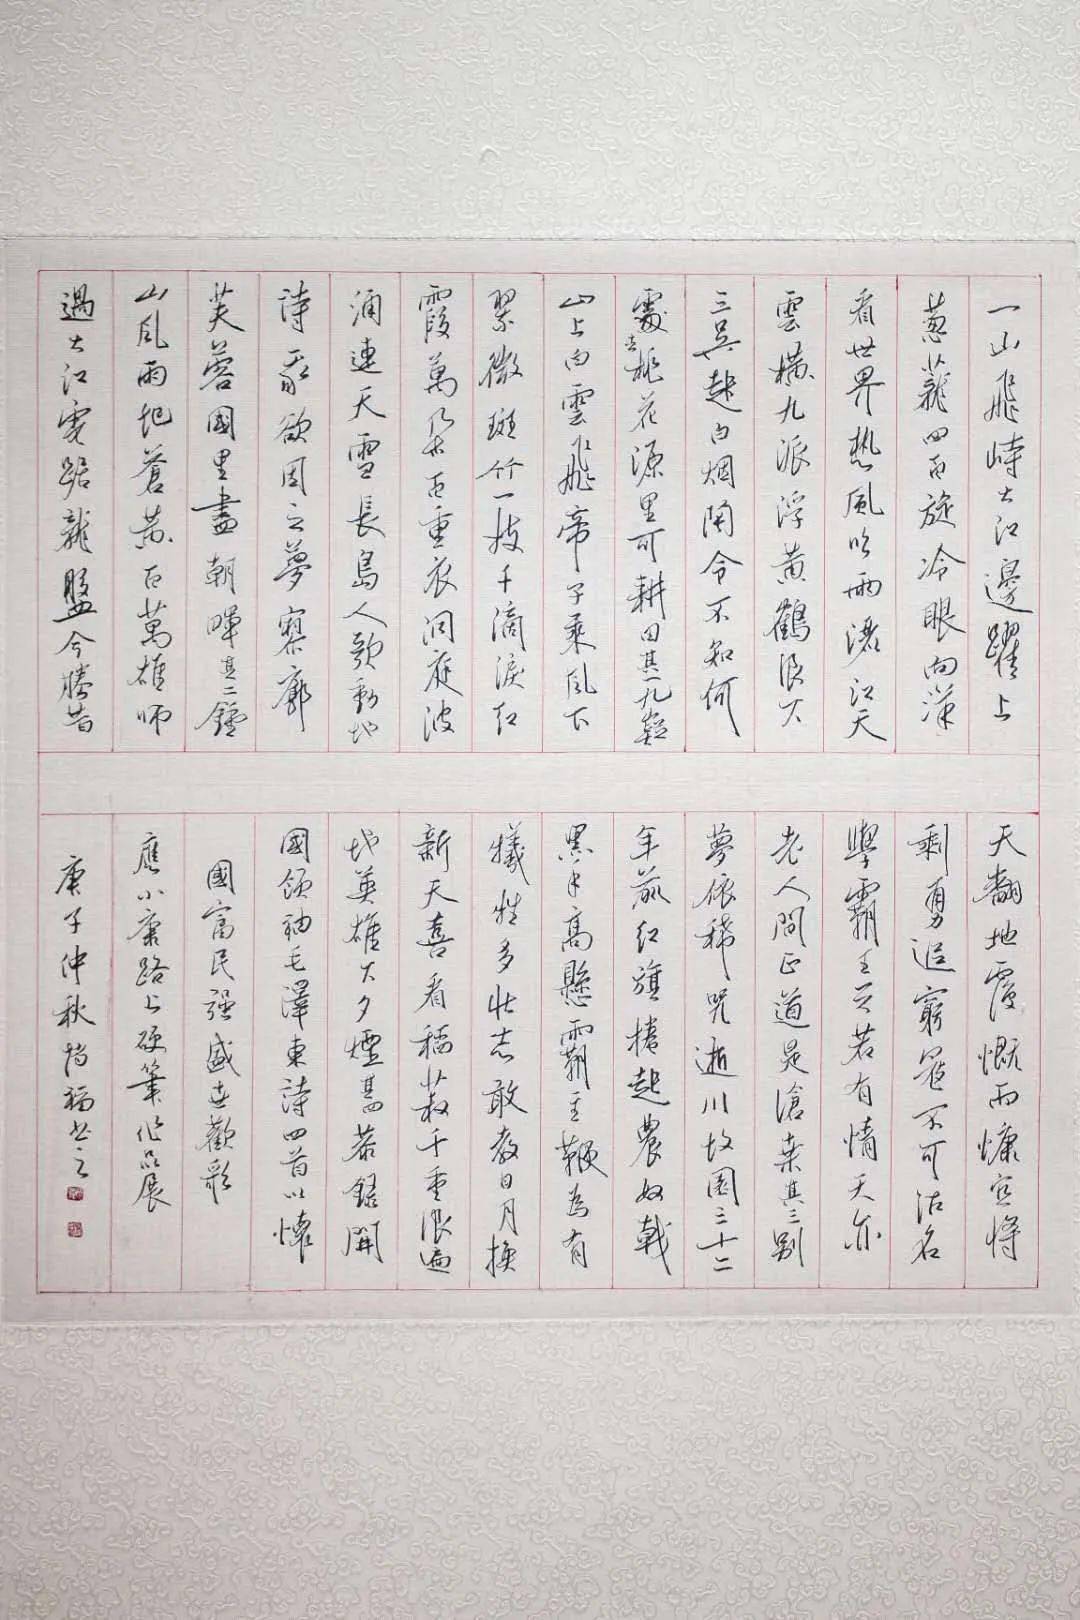 一山飛峙大江邊躍上
蔥蘢四百旋冷眼向洋
看世界熱風吹雨灑江天
雲橫九派浮黃鶴浪下
三吴起白烟陶令不知何
處去桃花源里可耕田其一九嶷
山上白雲飛帝子乘風下
翠微斑竹一枝千滴淚紅
霞萬朵百重衣洞庭波
涌連天雪長島人歌動地
詩我欲因之夢寥廓
芙蓉國里盡朝暉其二鐘
山風雨起蒼黃百萬雄師
過大江虎踞龍盤今勝昔
天翻地覆慨而慷宜將
剩勇追窮寇不可沽名
學霸王天若有情天亦
老人間正道是滄桑其三别
夢依稀咒逝川故園三十二
年前紅旗捲起農奴戟
黑手高懸霸主鞭為有
犧牲多壯志敢教日月換
新天喜看稻菽千重浪遍
地英雄下夕煙其四恭錄開
國領袖毛澤東詩四首以懷
國富民强盛世歡歌
應小康路上硬筆作品展
庚子仲秋 福書之